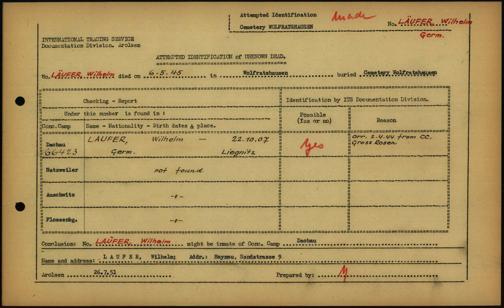 Attempted Identification made
Cemetery WOLFRATSHAUSEN
No. LÄUFER, Wilhelm
Germ.
INTERNATIONAL TRACING SERVICE
Documentation Division, Arolsen
ATTEMPTED IDENTIFICATION of UNKNOWN DEAD.
No. LÄUFER, Wilhelm died on 6-5-45 in Wolfratshausen buried Cemetery Wolfratshausen
Checking - Report
Identification by ITS Documentation Division.
Under this number is found in :
Possible (Yes or no)
Reason
Conc.Camp Name - Nationality - Birth dates & place.
Dachau 66423
LÄUFER, Wilhelm — 22.10.07
Germ. Liegnitz
Yes
arr. 2.4.44 from CC. Gross Rosen
Natzweiler not found
Auschwitz -"-
Flossenbg. -"-
Conclusion: No. LÄUFER, Wilhelm might be inmate of Conc. Camp Dachau
Name and address: LAUFER, Wilhelm; Addr.: Haynau, Sandstrasse 9
Arolsen 26.7.51 Prepared by: